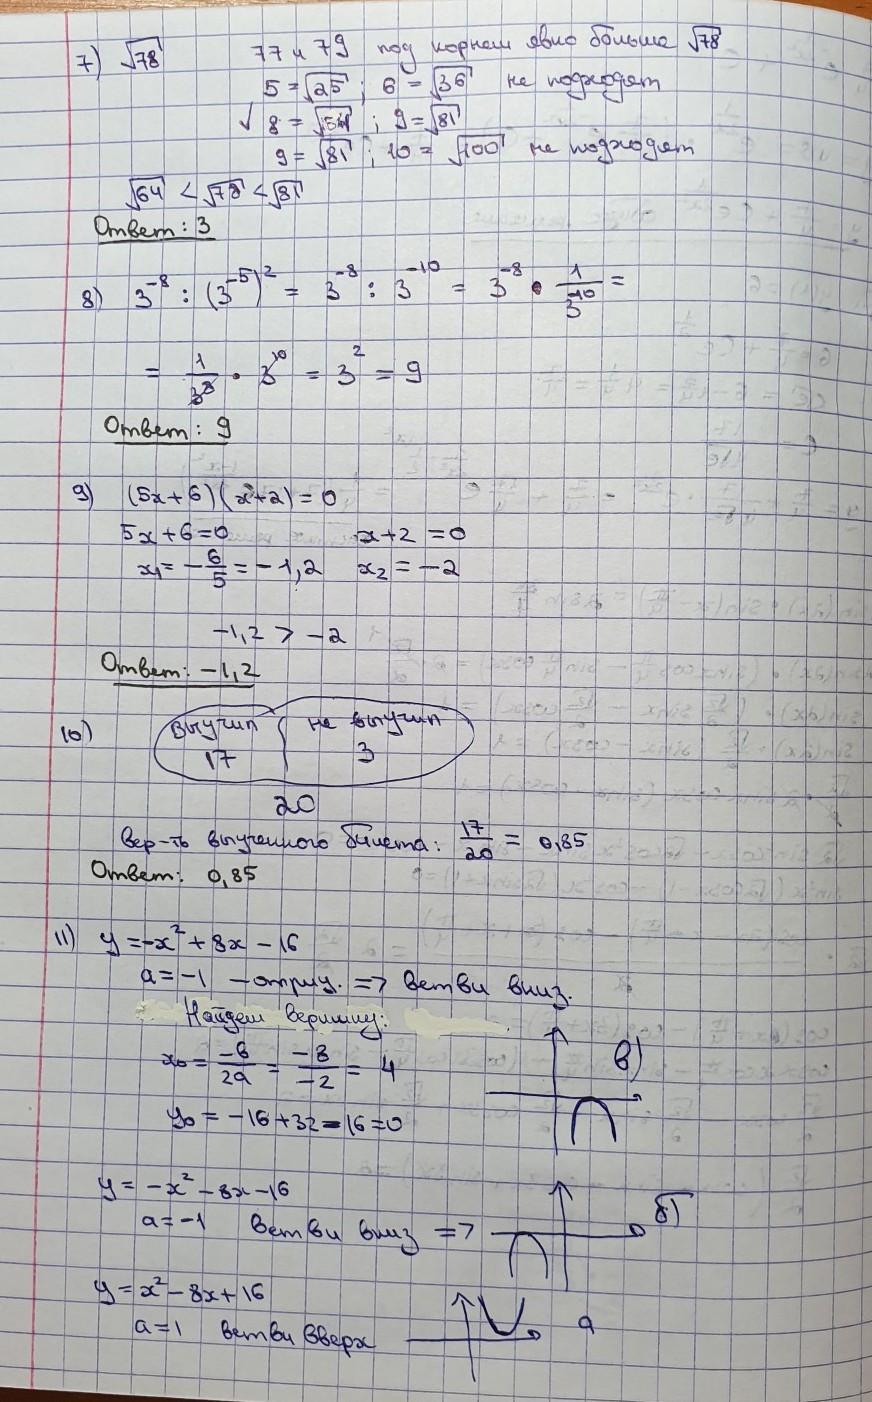 7) √78 77 и 79 под корнем явно больше √78
5 = √25 ; 6 = √36 не подходят
√ 8 = √64 ; 9 = √81
9 = √81 ; 10 = √100 не подходят
√64 < √78 < √81
Ответ: 3
8) 3^-8 : (3^-5)^2 = 3^-8 : 3^-10 = 3^-8 • 1/3^-10 =
= 1/3^8 • 3^10 = 3^2 = 9
Ответ: 9
9) (5x+6)(x+2)=0
5x+6=0 x+2=0
x1= -6/5 = -1,2 x2 = -2
-1,2 > -2
Ответ: -1,2
10) выучил не выучил
17 3
20
Вер-ть выученного билета: 17/20 = 0,85
Ответ: 0,85
11) y = -x^2 + 8x - 16
a = -1 - отриц. => ветви вниз.
Найдем вершину:
x0 = -b/2a = -8/-2 = 4 в)
y0 = -16+32-16=0
y = -x^2 - 8x - 16
a = -1 ветви вниз => б)
y = x^2 - 8x + 16
a = 1 ветви вверх а